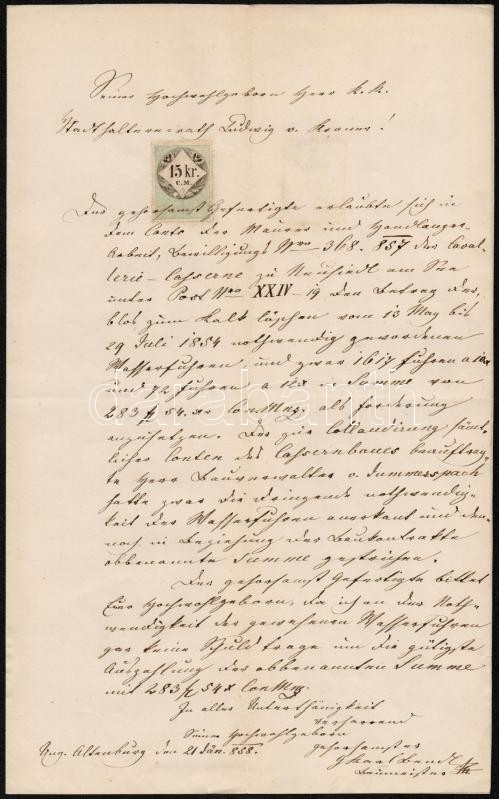 Seiner Hochwohlgeborn Herr k. k.
Stadthaltereirath Ludwig v. Kromer!
15 kr.
C.M.
Der gehorsamst Gefertigte erlaubte sich in
dem Conto der Maurer und Handlanger-
Arbeit, Bewilligungs Nro 368. 857 der Caval-
lerie-Caserne zu Neusiedl am See
unter Post Nro XXIV-19 den Betrag des
blos zum Kalk löschen vom 13 May bis
29 Juli 1854 nothwendig gewordenen
Wasserfuhren und zwar 1617 Fuhren a 10x
und 72 Fuhren a 12x in Summe von
283 f 54 xr ConMz. als Forderung
anzusetzen. Der zur Collaudirung sämt-
licher Conten des Casernbaues beauftrag-
te Herr Bauverwalter v. Dummerspach
hatte zwar die dringende Nothwendig-
keit der Wasserfuhren anerkant und den-
noch in Beziehung der Baukontrakte
obbenannte Summe gestrichen.
Der gehorsamst Gefertigte bittet
Euer Hochwohlgeborn, da ich an der Noth-
wendigkeit der gewesenen Wasserfuhren
gar keine Schuld trage um die gütigste
Auszahlung der obbenannten Summe
mit 283 f 54 x ConMz.
In aller Unterthänigkeit
verharrend
Seiner Hochwohlgeborn
gehorsamster
Ung. Altenburg den 21 Jän. 858.
Karl Bendl
Baumeister
darabanth